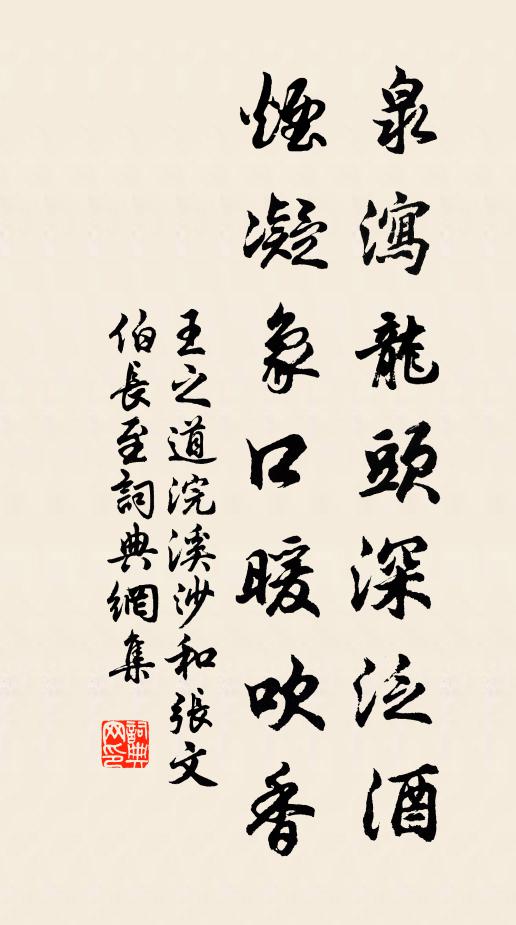 泉瀉龍頭深泛酒
煙凝象口暖吹香
王之道浣溪沙和張文
伯長至詞典網集
詞典
网印